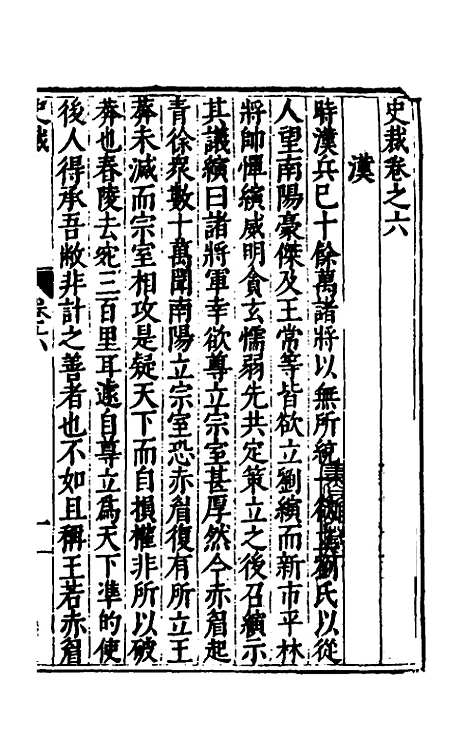 史裁卷之六
漢
時漢兵已十餘萬諸將以無所統一欲立劉氏以從
人望南陽豪傑及王常等皆欲立劉縯而新市平林
將帥憚縯威明貪玄懦弱先共定策立之後召縯示
其議縯曰諸將軍幸欲尊立宗室甚厚然今赤眉起
青徐衆數十萬聞南陽立宗室恐赤眉復有所立王
莽未滅而宗室相攻是疑天下而自損權非所以破
莽也舂陵去宛三百里耳遽自尊立爲天下凖的使
後人得承吾敝非計之善者也不如且稱王若赤眉
史裁 卷之六 一